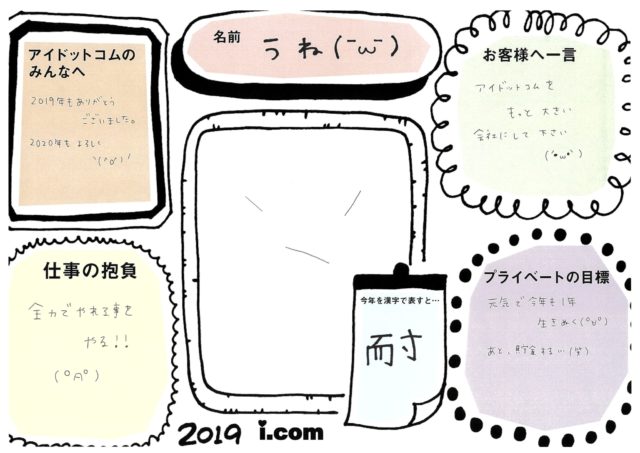 アイドットコムの
みんなへ
2019年もありがとう
ございました。
2020年もよろしい
名前
うね(-ω-)
お客様へ一言
アイドットコムを
もっと大きい
会社にして下さい
(・ω・)
仕事の抱負
全力でやれる事を
やる!!
(°Д°)
今年を漢字で表すと…
耐
プライベートの目標
元気で今年も1年
生きぬく(°∀°)
あと、貯金するい(笑)
2019 i.com